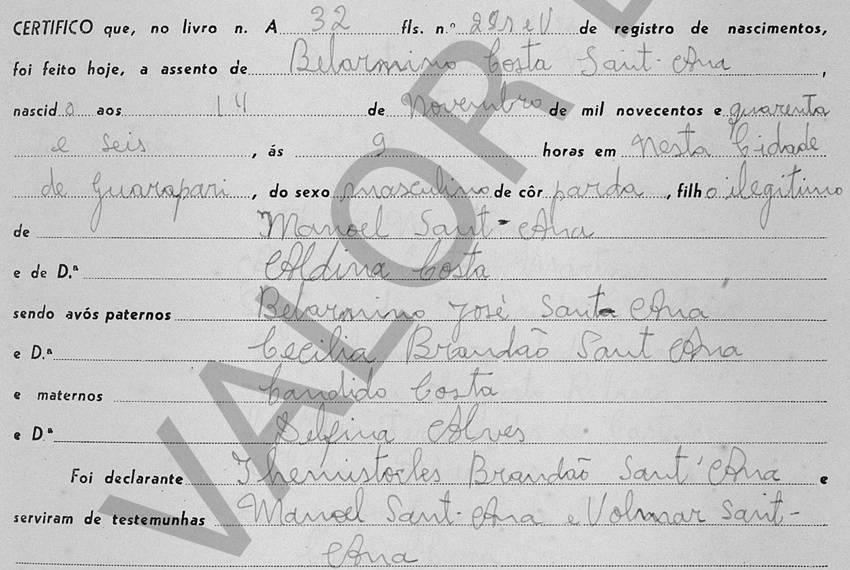 CERTIFICO que, no livro n. A 32 fls. n.º 221 e V de registro de nascimentos,
foi feito hoje, a assento de Belarmino Costa Sant-Ana,
nascido aos 14 de Novembro de mil novecentos e quarenta
e seis, ás 9 horas em Nesta Cidade
de Guarapari, do sexo masculino de côr parda, filho ilegítimo
de Manoel Sant-Ana
e de D.ª Aldina Costa
sendo avós paternos Belarmino José Santa Ana
e D.ª Cecilia Brandão Sant Ana
e maternos Candido Costa
e D.ª Delfina Alves
Foi declarante Themistocles Brandão Sant'Ana e
serviram de testemunhas Manoel Sant-Ana e Volmar Sant-
Ana
VALOR